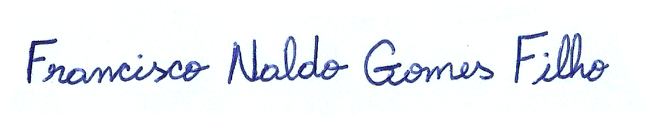 Francisco Naldo Gomes Filho